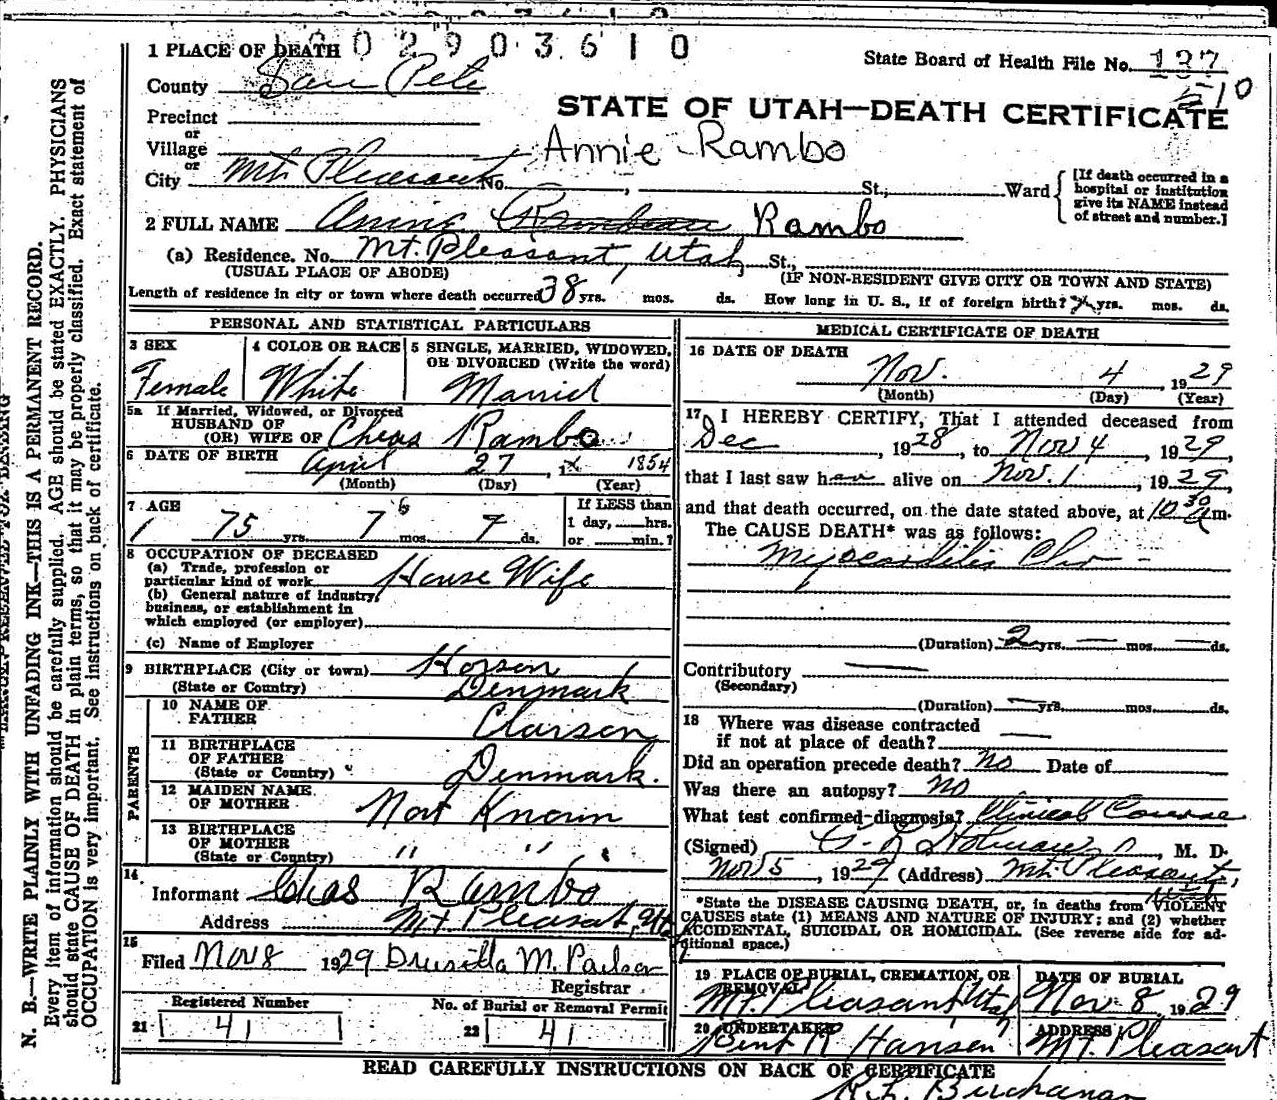 1 PLACE OF DEATH 0 2 9 0 3 6 1 0
State Board of Health File No. 137
510
County San Pete
STATE OF UTAH—DEATH CERTIFICATE
Precinct
or
Village
Annie Rambo
or
City Mt. Pleasant No. , St., Ward
[If death occurred in a hospital or institution give its NAME instead of street and number.]
2 FULL NAME Annie Rambeau Rambo
(a) Residence. No. Mt. Pleasant, Utah, St.,
(USUAL PLACE OF ABODE) (IF NON-RESIDENT GIVE CITY OR TOWN AND STATE)
Length of residence in city or town where death occurred 38 yrs. mos. ds. How long in U. S., if of foreign birth? yrs. mos. ds.
PERSONAL AND STATISTICAL PARTICULARS
3 SEX 4 COLOR OR RACE 5 SINGLE, MARRIED, WIDOWED,
OR DIVORCED (Write the word)
Female White Married
5a If Married, Widowed, or Divorced
HUSBAND OF
(OR) WIFE OF Chas Rambo
6 DATE OF BIRTH April 27, 1 1854
(Month) (Day) (Year)
7 AGE If LESS than
75 yrs. 7 6 mos. 7 ds. 1 day, hrs.
or min.?
8 OCCUPATION OF DECEASED
(a) Trade, profession or
particular kind of work House Wife
(b) General nature of industry,
business, or establishment in
which employed (or employer)
(c) Name of Employer
9 BIRTHPLACE (City or town) Horsen
(State or Country) Denmark
PARENTS
10 NAME OF
FATHER Clarsen
11 BIRTHPLACE
OF FATHER
(State or Country) Denmark.
12 MAIDEN NAME
OF MOTHER Nort Known
13 BIRTHPLACE
OF MOTHER
(State or Country) " "
14
Informant Chas Rambo
Address Mt Pleasant, Utah
15
Filed Nov 8 1929 Druscilla M. Paulsen
Registrar
Registered Number No. of Burial or Removal Permit
21 41 22 41
MEDICAL CERTIFICATE OF DEATH
16 DATE OF DEATH
Nov. 4, 1929
(Month) (Day) (Year)
17 I HEREBY CERTIFY, That I attended deceased from
Dec, 1928, to Nov 4, 1929,
that I last saw her alive on Nov. 1, 1929,
and that death occurred, on the date stated above, at 10 30 a m.
The CAUSE DEATH* was as follows:
Myocarditis Chr
(Duration) 2 yrs. — mos. — ds.
Contributory —
(Secondary)
(Duration) — yrs. mos. ds.
18 Where was disease contracted
if not at place of death? —
Did an operation precede death? No Date of
Was there an autopsy? No
What test confirmed diagnosis? Clinical Course
(Signed) , M. D.
Nov 5, 1929 (Address) Mt. Pleasant,
Utah
*State the DISEASE CAUSING DEATH, or, in deaths from VIOLENT
CAUSES state (1) MEANS AND NATURE OF INJURY; and (2) whether
ACCIDENTAL, SUICIDAL OR HOMICIDAL. (See reverse side for ad-
ditional space.)
19 PLACE OF BURIAL, CREMATION, OR
REMOVAL
DATE OF BURIAL
Mt. Pleasant Utah Nov 8 1929
20 UNDERTAKER ADDRESS
Bent R Hansen Mt. Pleasant
READ CAREFULLY INSTRUCTIONS ON BACK OF CERTIFICATE
R. L. Buchanan
N. B.—WRITE PLAINLY WITH UNFADING INK—THIS IS A PERMANENT RECORD.
Every item of information should be carefully supplied. AGE should be stated EXACTLY. PHYSICIANS
should state CAUSE OF DEATH in plain terms, so that it may be properly classified. Exact statement of
OCCUPATION is very important. See instructions on back of certificate.